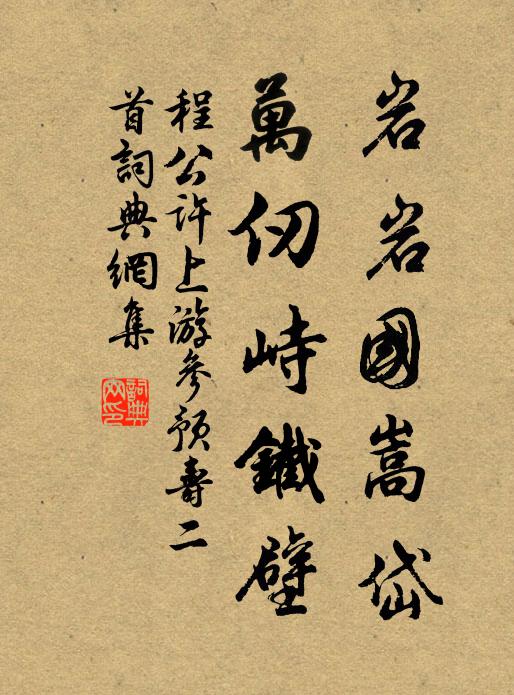 岩岩國嵩岱
萬仞峙鐵壁
程公許上游參預壽二
首詞典網集
詞典網印